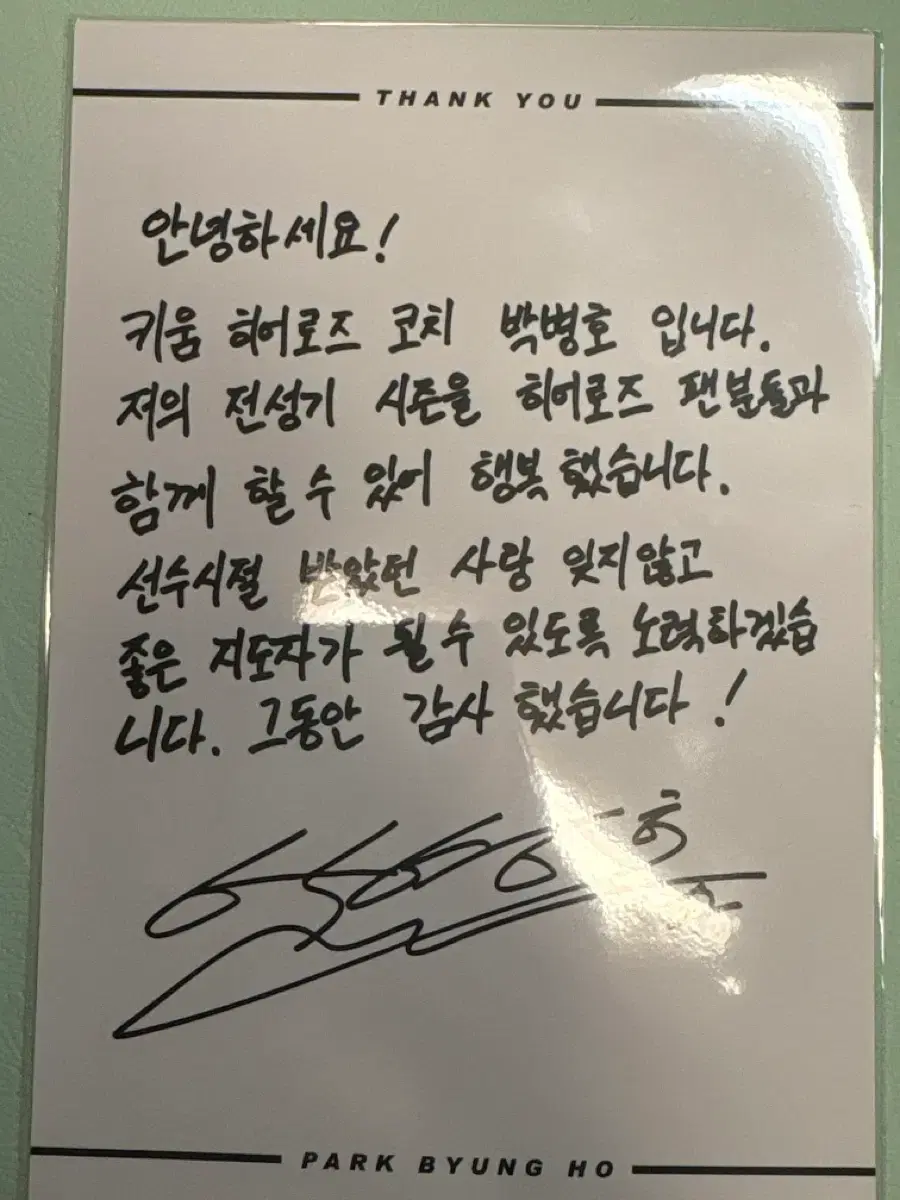 THANK YOU
안녕하세요!
키움 히어로즈 코치 박병호 입니다.
저의 전성기 시즌을 히어로즈 팬분들과
함께 할 수 있어 행복했습니다.
선수시절 받았던 사랑 잊지않고
좋은 지도자가 될 수 있도록 노력하겠습
니다. 그동안 감사했습니다!
PARK BYUNG HO